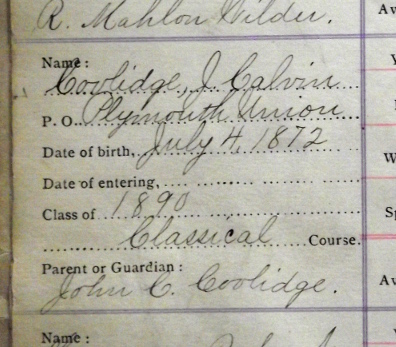 R. Mahlon Wilder.
Av
Name:
Coolidge, J Calvin
P. O. Plymouth Union
Date of birth, July 4, 1872
Date of entering,
Class of 1890
W
Sp
Classical Course.
Parent or Guardian:
John C. Coolidge.
Av
Name: